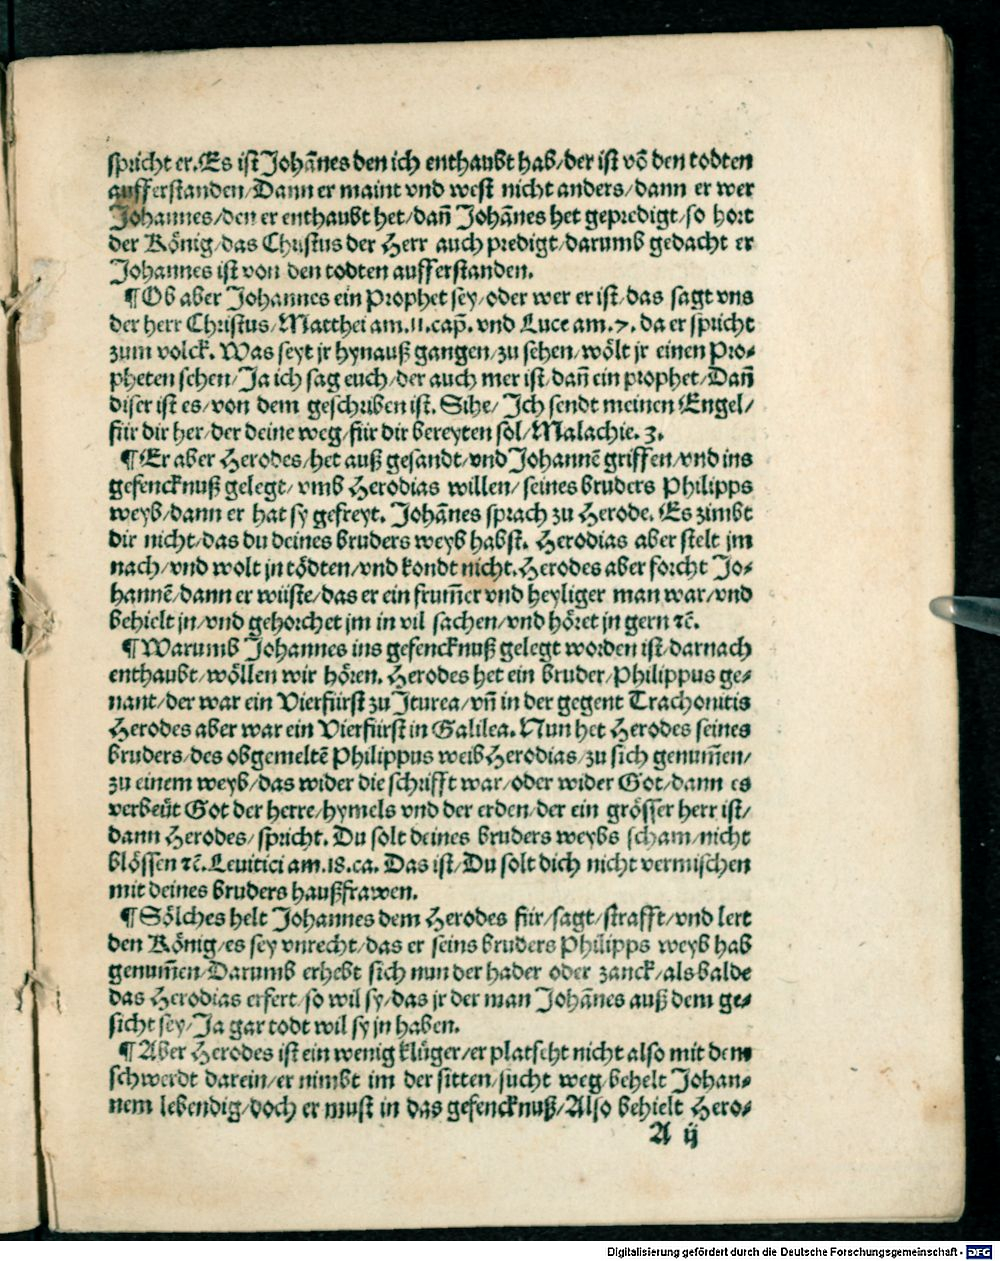 spricht er. Es ist Johãnes den ich enthaubt hab/ der ist võ den todten
aufferstanden/ Dann er maint vnd west nicht anders/ dann er wer
Johannes/ den er enthaubt het/ dañ Johãnes het gepredigt/ so hort
der Kőnig/ das Christus der Herr auch predigt/ darumb gedacht er
Johannes ist von den todten aufferstanden.
¶ Ob aber Johannes ein Prophet sey/ oder wer er ist/ das sagt vns
der herr Christus/ Matthei am .11. cap̃. vnd Luce am .7. da er spricht
zum volck. Was seyt jr hynauß gangen/ zu sehen/ wőlt jr einen Pro⸗
pheten sehen/ Ja ich sag euch/ der auch mer ist/ dañ ein prophet/ Dañ
diser ist es/ von dem geschriben ist. Sihe/ Ich sendt meinen Engel/
für dir her/ der deine weg/ für dir bereyten sol/ Malachie. 3.
¶ Er aber Herodes/ het auß gesandt/ vnd Johannẽ griffen/ vnd ins
gefencknuß gelegt/ vmb Herodias willen/ seines bruders Philipps
weyb/ dann er hat sy gefreyt. Johãnes sprach zu Herode. Es zimbt
dir nicht/ das du deines bruders weyb habst. Herodias aber stelt jm
nach/ vnd wolt jn tődten/ vnd kondt nicht. Herodes aber forcht Jo⸗
hannẽ/ dann er wüste/ das er ein frum̃er vnd heyliger man war/ vnd
behielt jn/ vnd gehorchet jm in vil sachen/ vnd hőret jn gern ꝛc̃.
¶ Warumb Johannes ins gefencknuß gelegt worden ist/ darnach
enthaubt/ wőllen wir hőren. Herodes het ein bruder/ Philippus ge⸗
nant/ der war ein Vierfürst zu Iturea/ vñ in der gegent Trachonitis
Herodes aber war ein Vierfürst in Galilea. Nun het Herodes seines
bruders/ des obgemeltẽ Philippus weib Herodias/ zu sich genum̃en/
zu einem weyb/ das wider die schrifft war/ oder wider Got/ dann es
verbeüt Got der herre/ hymels vnd der erden/ der ein grősser herr ist/
dann Herodes/ spricht. Du solt deines bruders weybs scham/ nicht
blőssen ꝛc̃. Leuitici am .18. ca. Das ist/ Du solt dich nicht vermischen
mit deines bruders haußfrawen.
¶ Sőlches helt Johannes dem Herodes für/ sagt/ strafft/ vnd lert
den Kőnig/ es sey vnrecht/ das er seins bruders Philipps weyb hab
genum̃en/ Darumb erhebt sich nun der hader oder zanck/ als balde
das Herodias erfert/ so wil sy/ das jr der man Johãnes auß dem ge⸗
sicht sey/ Ja gar todt wil sy jn haben.
¶ Aber Herodes ist ein wenig klüger/ er platscht nicht also mit dem
schwerdt darein/ er nimbt im der sitten/ sucht weg/ behelt Johan⸗
nem lebendig/ doch er must in das gefencknuß/ Also behielt Hero⸗
A ij
Digitalisierung gefördert durch die Deutsche Forschungsgemeinschaft - DFG